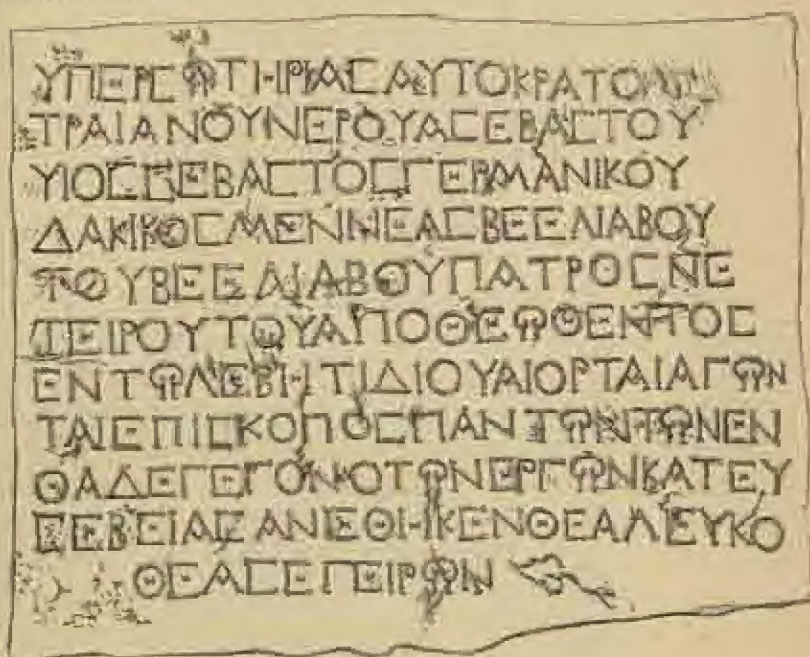 ΥΠΕΡΣΩΤΗΡΙΑΣΑΥΤΟΚΡΑΤΟΡΟΣ
ΤΡΑΙΑΝΟΥΝΕΡΟΥΑΣΕΒΑΣΤΟΥ
ΥΙΟΣΣΕΒΑΣΤΟΣΓΕΡΜΑΝΙΚΟΥ
ΔΑΚΙΚΟΣΜΕΝΝΕΑΣΒΕΕΛΙΑΒΟΥ
ΤΟΥΒΕΕΛΙΑΒΟΥΠΑΤΡΟΣΝΕ
ΤΕΙΡΟΥΤΟΥΑΠΟΘΕΩΘΕΝΤΟΣ
ΕΝΤΩΛΕΒΗΤΙΔΙΟΥΑΙΟΡΤΑΙΑΓΩΝ
ΤΑΙΕΠΙΣΚΟΠΟΣΠΑΝΤΩΝΤΩΝΕΝ
ΘΑΔΕΓΕΓΟΝΟΤΩΝΕΡΓΩΝΚΑΤΕΥ
ΣΕΒΕΙΑΣΑΝΕΘΗΚΕΝΘΕΑΛΕΥΚΟ
ΘΕΑΣΕΓΕΙΡΩΝ